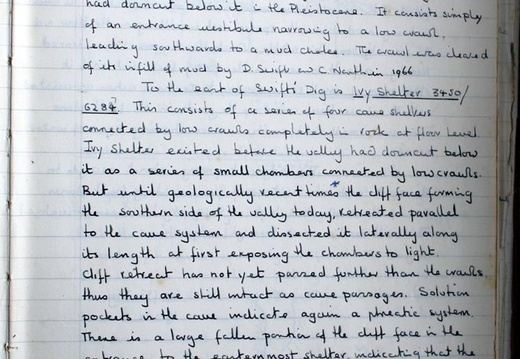 had downcut below it in the Pleistocene. It consists simply
of an entrance vestibule narrowing to a low crawl,
leading southwards to a mud choke. The crawl was cleared
of its infill of mud by D. Swift and C. North in 1966
To the east of Swifts' Dig is Ivy Shelter 3450/
6284. This consists of a series of four cave shelters
connected by low crawls completely in rock at floor level.
Ivy Shelter existed before the valley had downcut below
it as a series of small chambers connected by low crawls.
But until geologically recent times the cliff face forming
the southern side of the valley today, retreated parallel
to the cave system and dissected it laterally along
its length at first exposing the chambers to light.
Cliff retreat has not yet passed further than the crawls,
thus they are still intact as cave passages. Solution
pockets in the cave indicate again a phreatic system.
There is a large fallen portion of the cliff face in the
entrance to the easternmost shelter, indicating that the